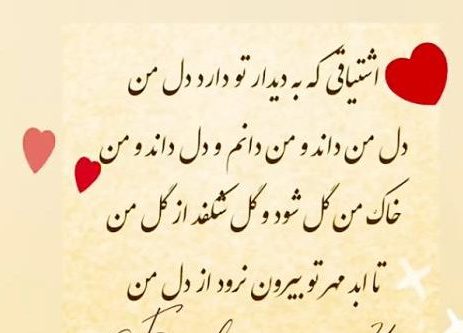 اشتیاقی که به دیدار تو دارد دل من
دل من داند و من دانم و دل داند و من
خاک من گل شود و گل شکفد از گل من
تا ابد مهر تو بیرون نرود از دل من